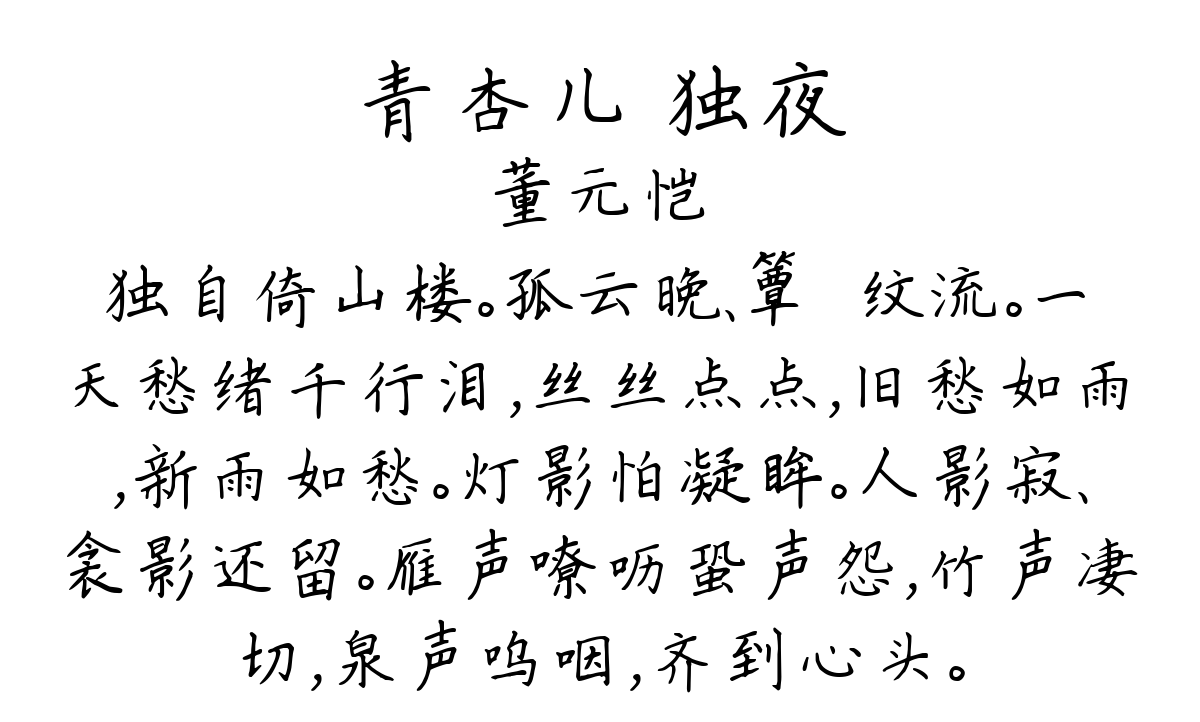 青杏儿 独夜
董元恺
独自倚山楼。孤云晚、簟 纹流。一
天愁绪千行泪,丝丝点点,旧愁如雨
,新雨如愁。灯影怕凝眸。人影寂、
衾影还留。雁声嘹呖蛩声怨,竹声凄
切,泉声呜咽,齐到心头。